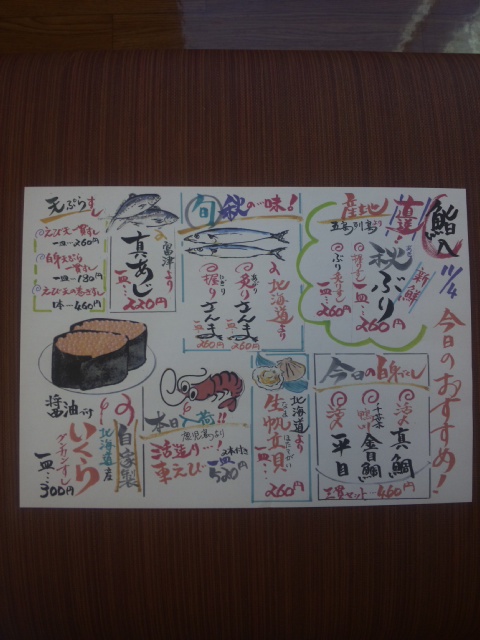 今日のおすすめ!
11/4
産地直送!
五島列島より
新鮮
秋ぶり
一皿…260円
ぶり
一皿…260円
旬 秋の味!
北海道より
炙りさんま
一皿…260円
握りさんま
一皿…260円
富津より
真あじ
一皿…220円
天ぷらすし
えび天一貫すし
一皿―260円
白身天ぷら
一貫すし
一皿―180円
えび天の巻きすし
1本―460円
今日の白身すし
活〆真鯛
千葉
鴨川
金目鯛
活〆平目
三貫セット―460円
北海道より
生帆立貝
260円
本日入荷!!
活造り…!
車えび
2本付き
一皿…520円
自家製
北海道産
いくら
醤油づけ
グンカンすし
一皿…300円